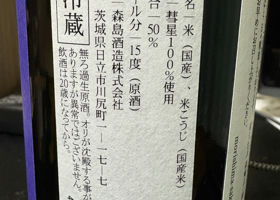 名 米(国産)、米こうじ(国産米)
彗星100%使用
合 50%
ール分 15度(原酒)
森島酒造株式会社
茨城県日立市川尻町一-一七-七
無ろ過生原酒。オリが沈殿する事が
ありますが異常ではございません。
飲酒は20歳になってから。
冷蔵